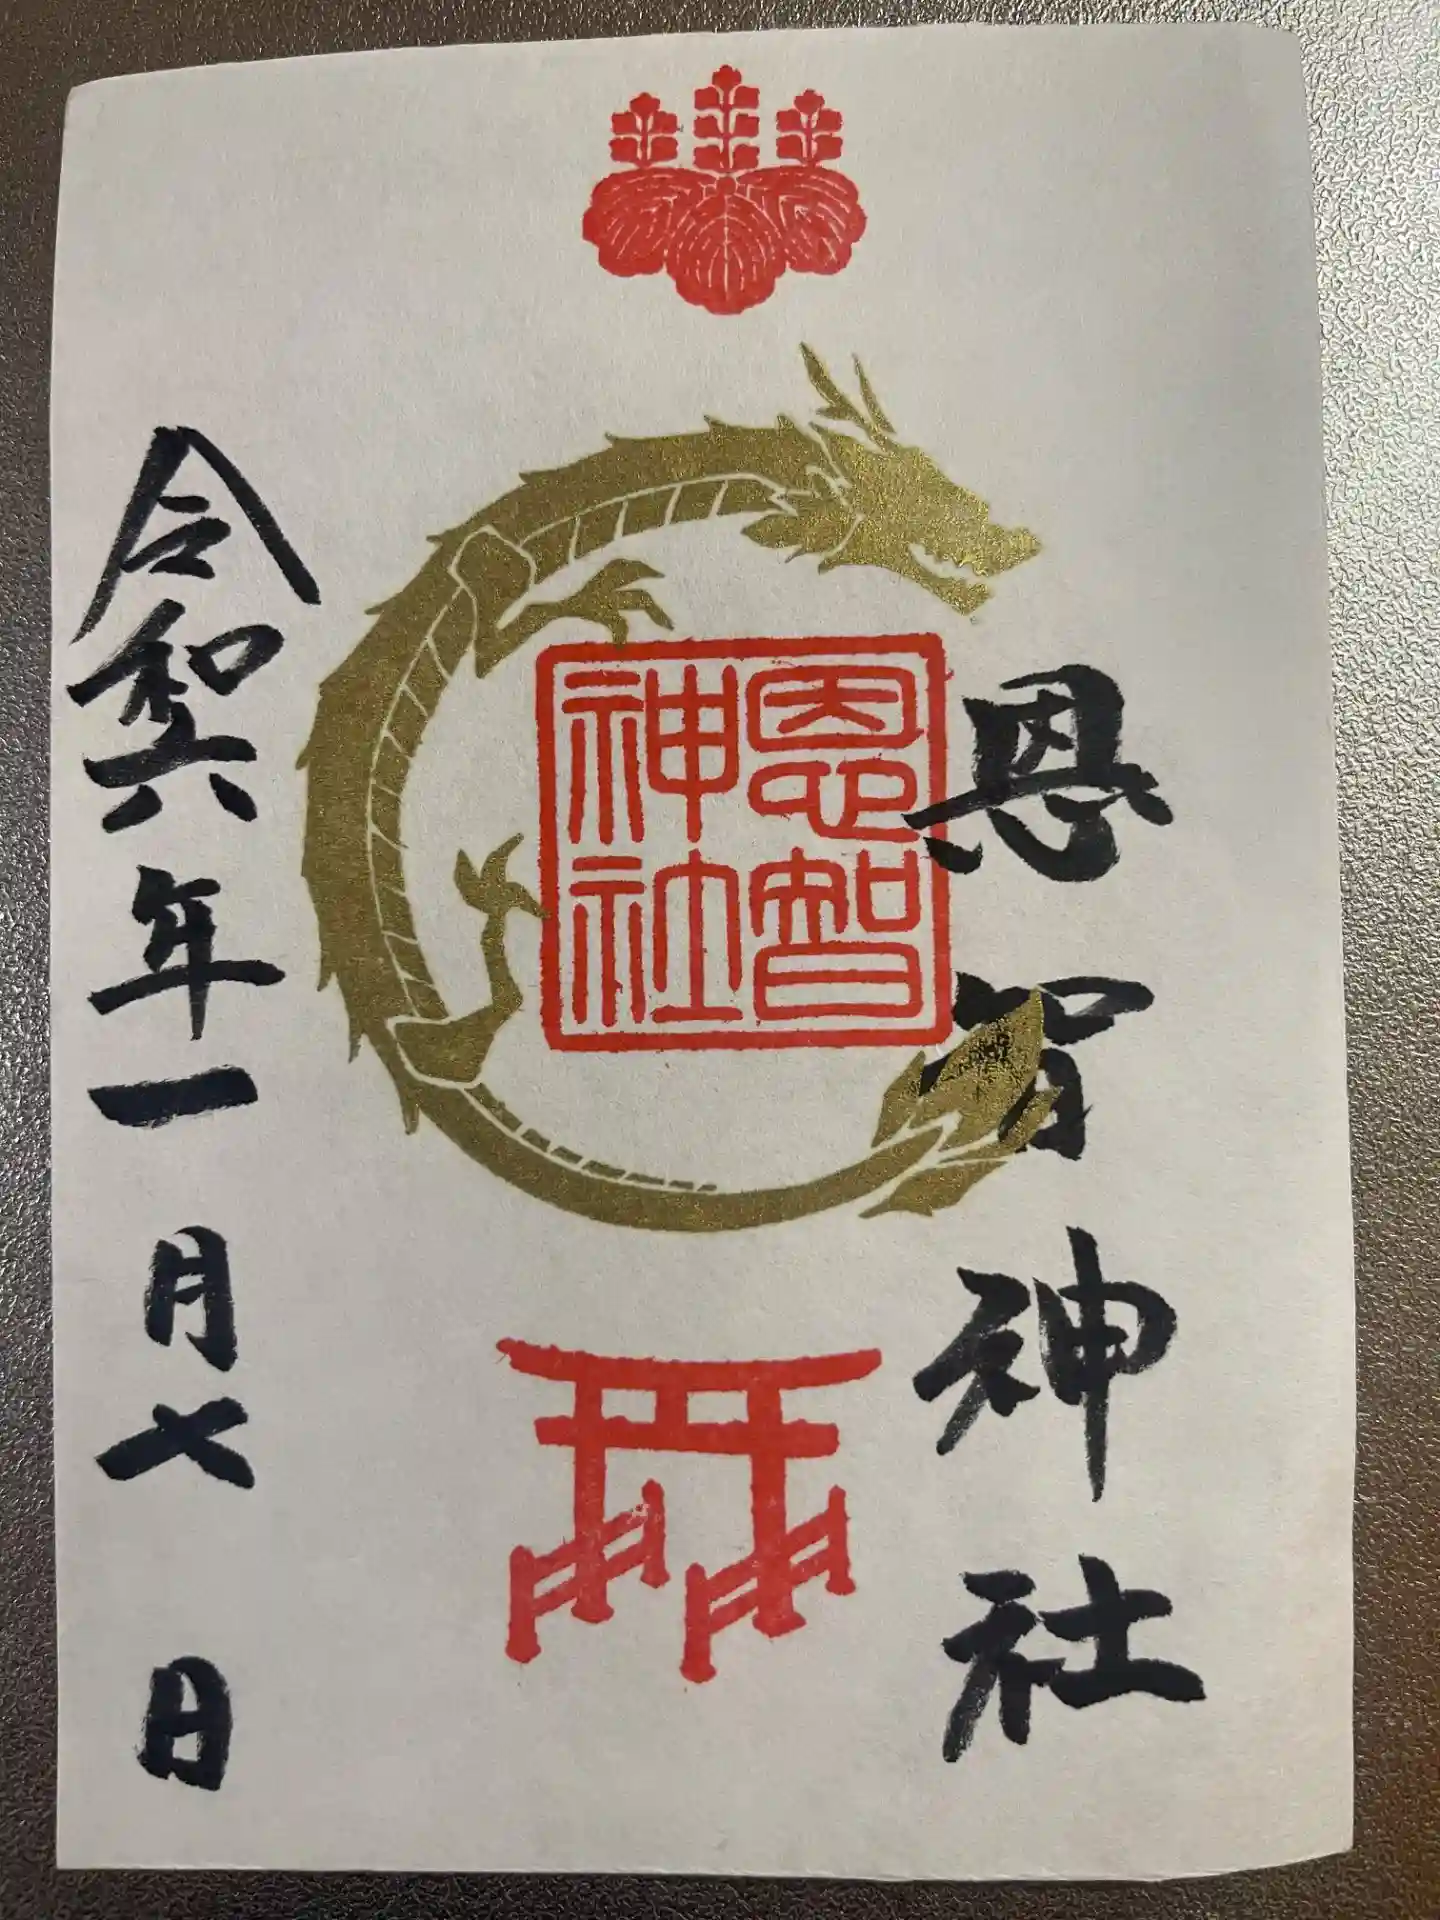 恩智神社
恩智
神社
令和六年一月七日